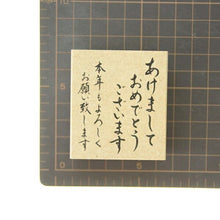 あけまして
おめでとう
ございます
本年もよろしく
お願い致します
10
5
0
5